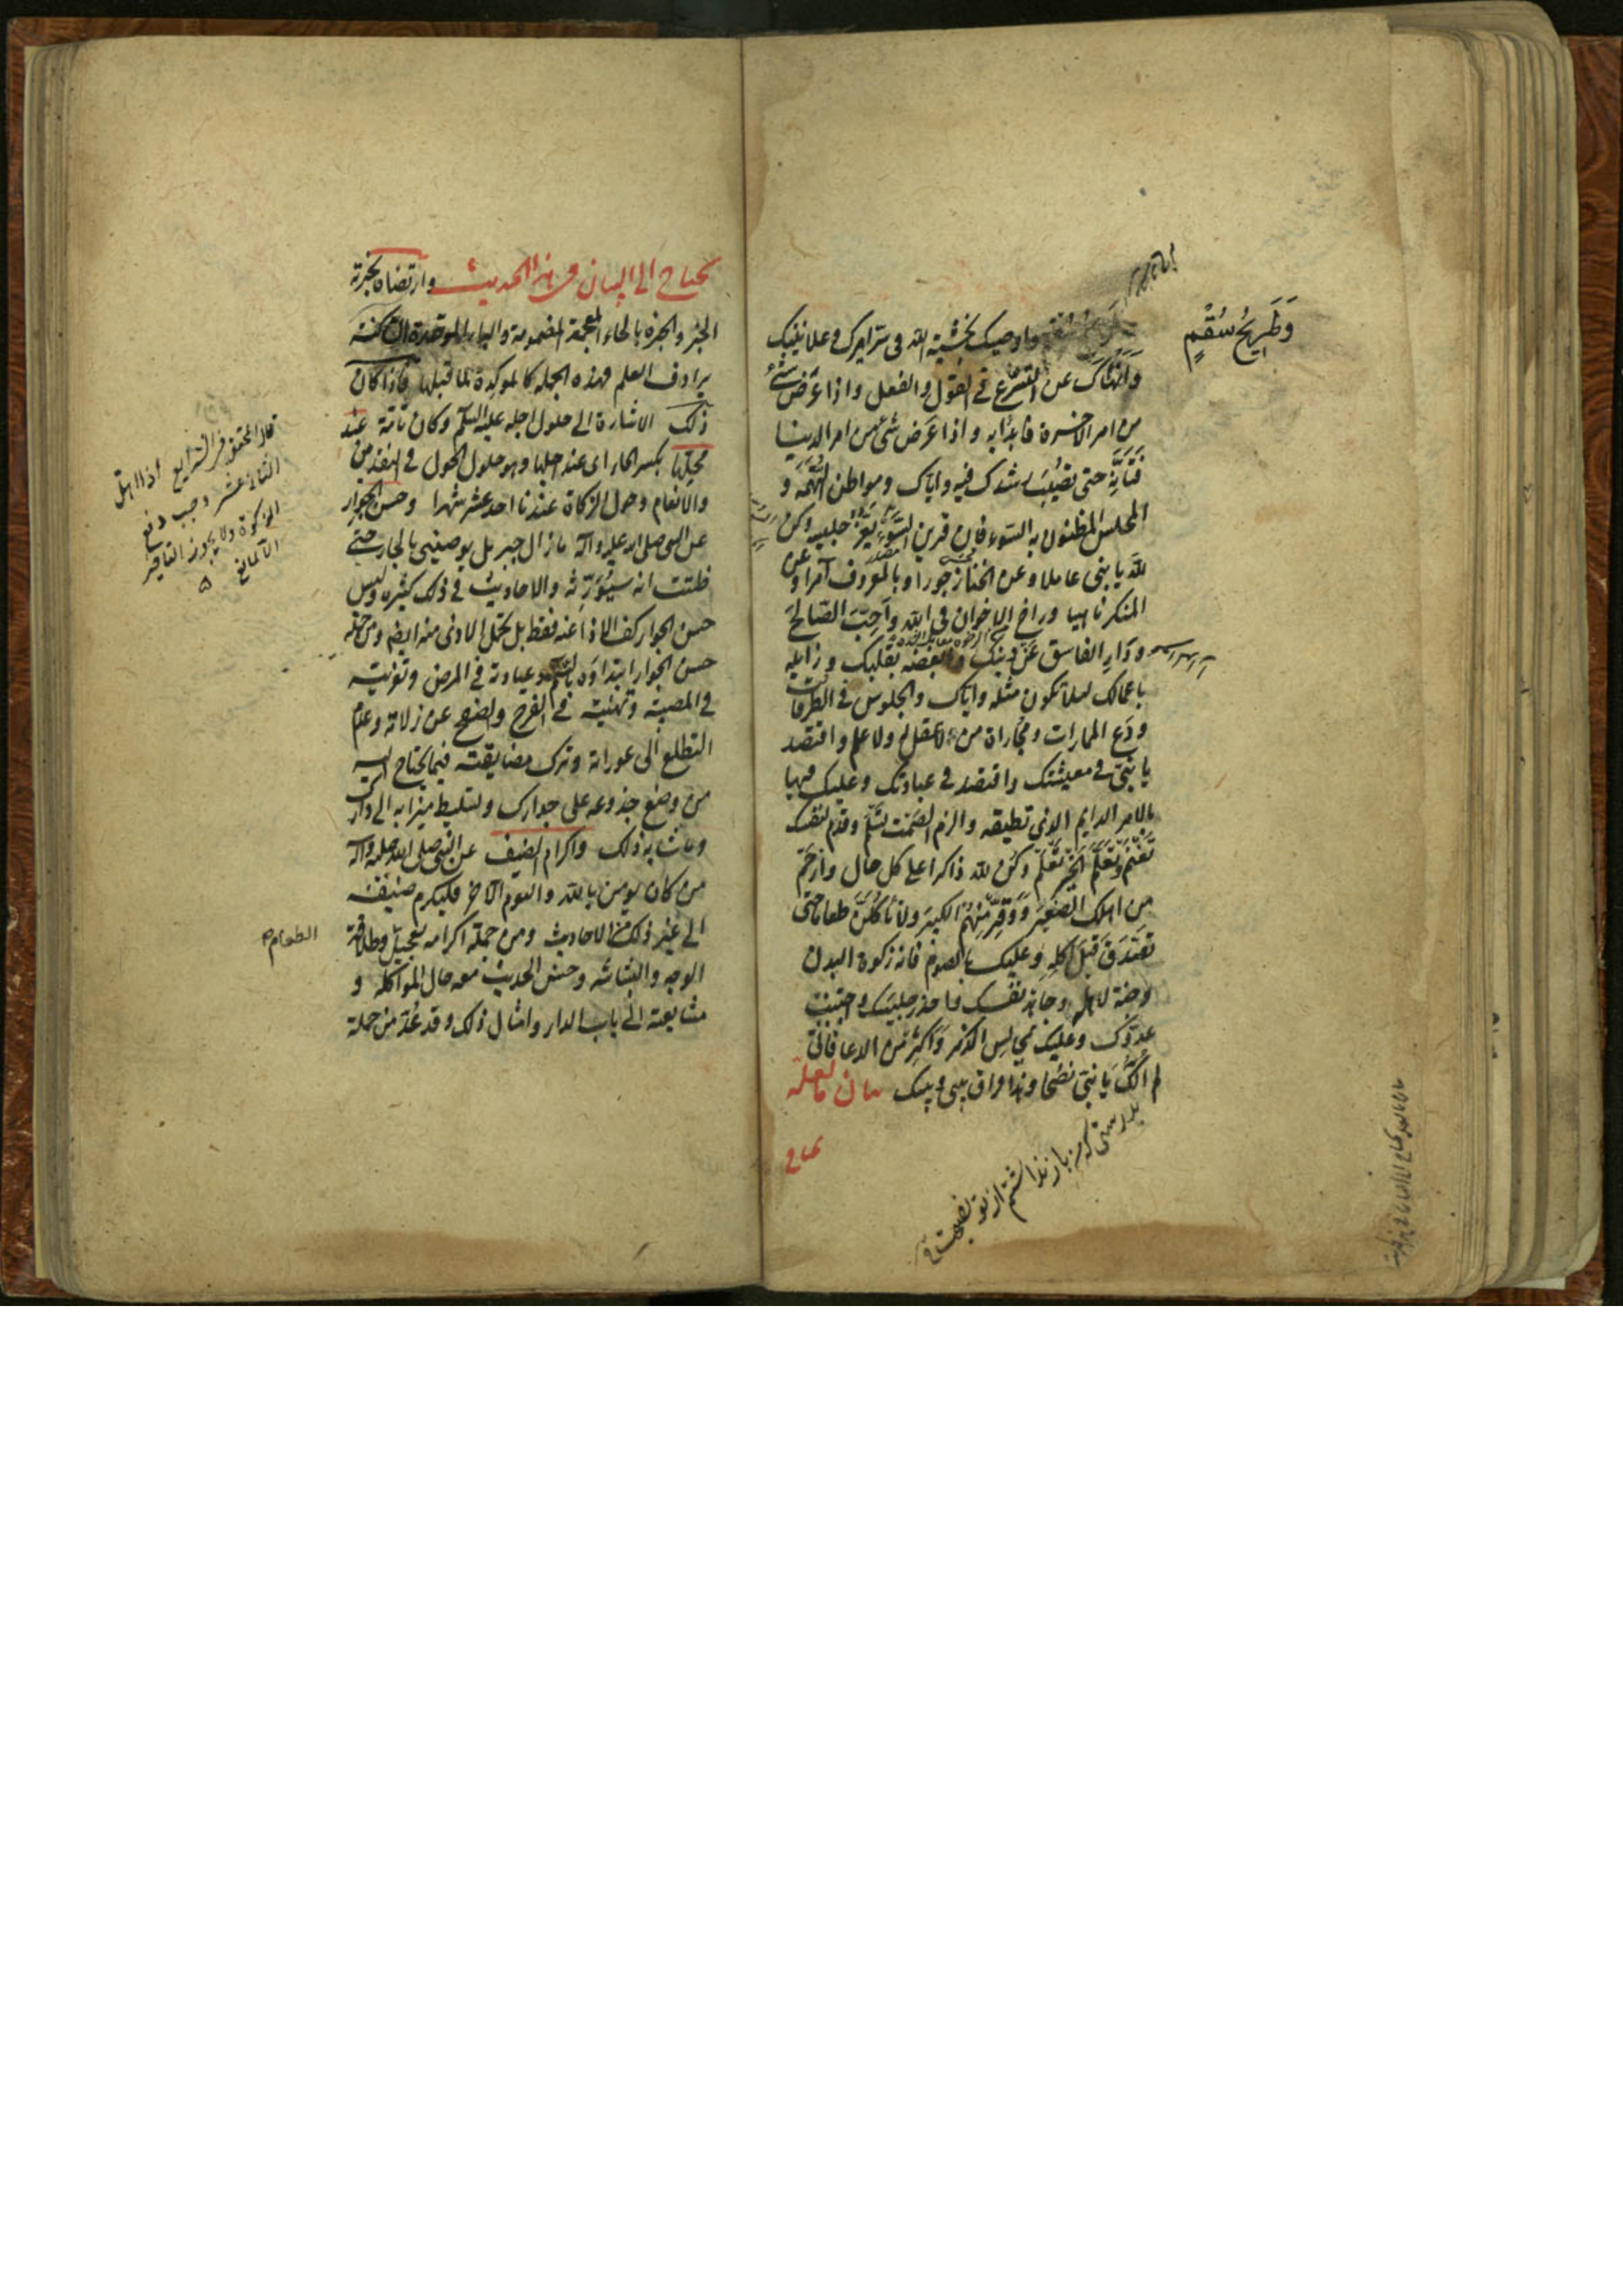 وَطَرِيحُ سُقْمٍ
واوصيك بخشية الله فى سرّ امرك وعلانيتك
وَاَنْهَاكَ عن التسرّع فى القول والفعل واذا عَرَض شئ
من امر الاخرة فابْدَابه واذا عَرَض شئ من امر الدنيا
فَتَأَنِّه حتى تصُيبَ رشدك فيه واياك ومواطن التُّهَمَه و
المجلس المظنون به السّوء فان قرين السّوْءِ يَغُرّ جليسه وكن
للّه يا بنى عاملا وعن الخنا زجورا وبالمعروف آمرا وعن
المنكر ناهيا وراخ الاخوان فى الله وَاَحِبَّ الصّالح
ودَارِ الفاسق عَنْ دينك وابغضه بقلبك وزايله
باعمالك لئلا تكون مثله واياك والجلوس فى الطرقات
ودَع الممارات ومُجَاراة من لا عقل له ولا علم واقتصد
يا بنىّ فى معيشتك واقتصد فى عبادتك وعليك فيها
بالامر الدايم الذى تطيقه والزم الصّمْت تسْلَم وقدّم لنفسك
تَغْنَم وَتَعَلَّم الخيْر تَعْلَم وكُن للّه ذاكرا على كل حال وارْحَم
من اهلك الصّغِيَر وَوَقِّرْ مِنْهُم الكبيَر ولا تَأكُلَنَّ طعاما حتى
تَصَدَّقَ قَبْلَ اَكْلِهِ وعليك بالصوم فانه زكوة البدن
وجنة لاهله وجاهد نفسك واحذر جليسك واجتنب
عدوّك وعليك بمجالس الذكر واَكْثِرْ مِن الدعا فانّى
لم آلُكَ يَا بنىّ نصْحًا وهذا فراق بينى وبينك بيان ما لعله
يحتاج
بدرستى كه من باز نداشتم از تو نصيحت
يحتاج الى البيان فى هذا الحديث وارتضاه لخبرته
الخبر والخبرة بالخاء المعجمة المضمومة والباء الموحدة الساكنة
يرادف العلم فهذه الجملة كالمؤكدة لما قبلها فاذا كان
ذلك الاشارة الى حلول اجله عليه السلم وكان ثامة عند
محلّها بكسر الحاء اى عند اجلها وهو حلول الحول فى النقدين
والانعام وحول الزكاة عندنا احد عشر شهرا وحسن الجوار
عن النبى صلى الله عليه وآله ما زال جبريل يوصينى بالجار حتى
ظننت انه سيُوَرِّثه والاحاديث فى ذلك كثيره وليس
حسن الجوار كف الاذا عنه فقط بل تحمل الاذى منه ايضا ومن جملة
حسن الجوار ابتداؤه بالسّلم وعيادته فى المرض وتعزيته
فى المصيبة وتهنيته فى الفرح والصفح عن زلاته وعدم
التطلع الى عوراته وترك مضايقته فيما يحتاج اليه
من وضع جذوعه على جدارك وتسليط ميزابه الى دارك
وما شابه ذلك واكرام الضيف عن النبى صلى الله عليه وآله
من كان يومن بالله واليوم الآخر فليكرم ضيفه
الى غير ذلك من الاحاديث ومن جملة اكرامه تعجيل وطلاقة
الوجه والبشاشه وحسن الحديث معه حال المواكلة و
مشايعته الى باب الدار وامثال ذلك وقد عُدّ من جملة
قال المحقق فى الشرايع اذا اهلّ
الثانى عشر وجب دفع
الزكوة ولا يجوز التاخير
الا لمانع
الطعام